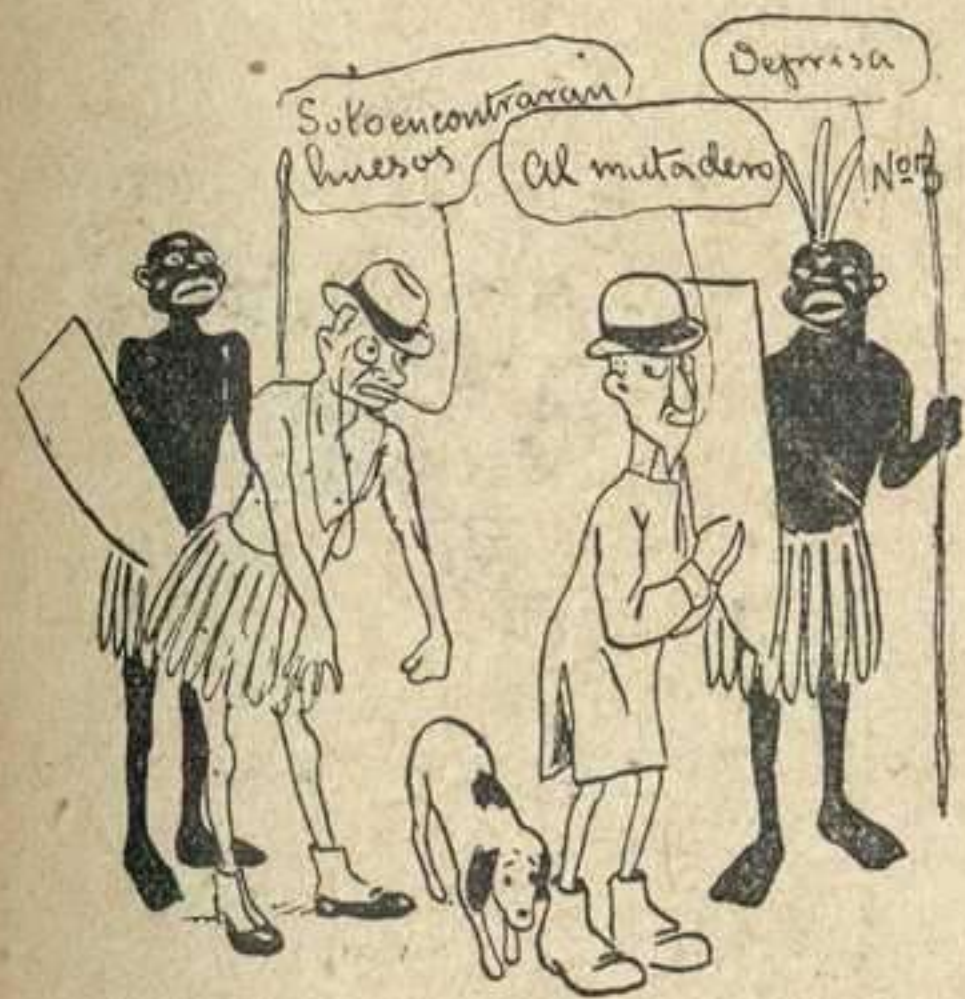 Solo encontraran
huesos
Al matadero
Deprisa
Nº 3